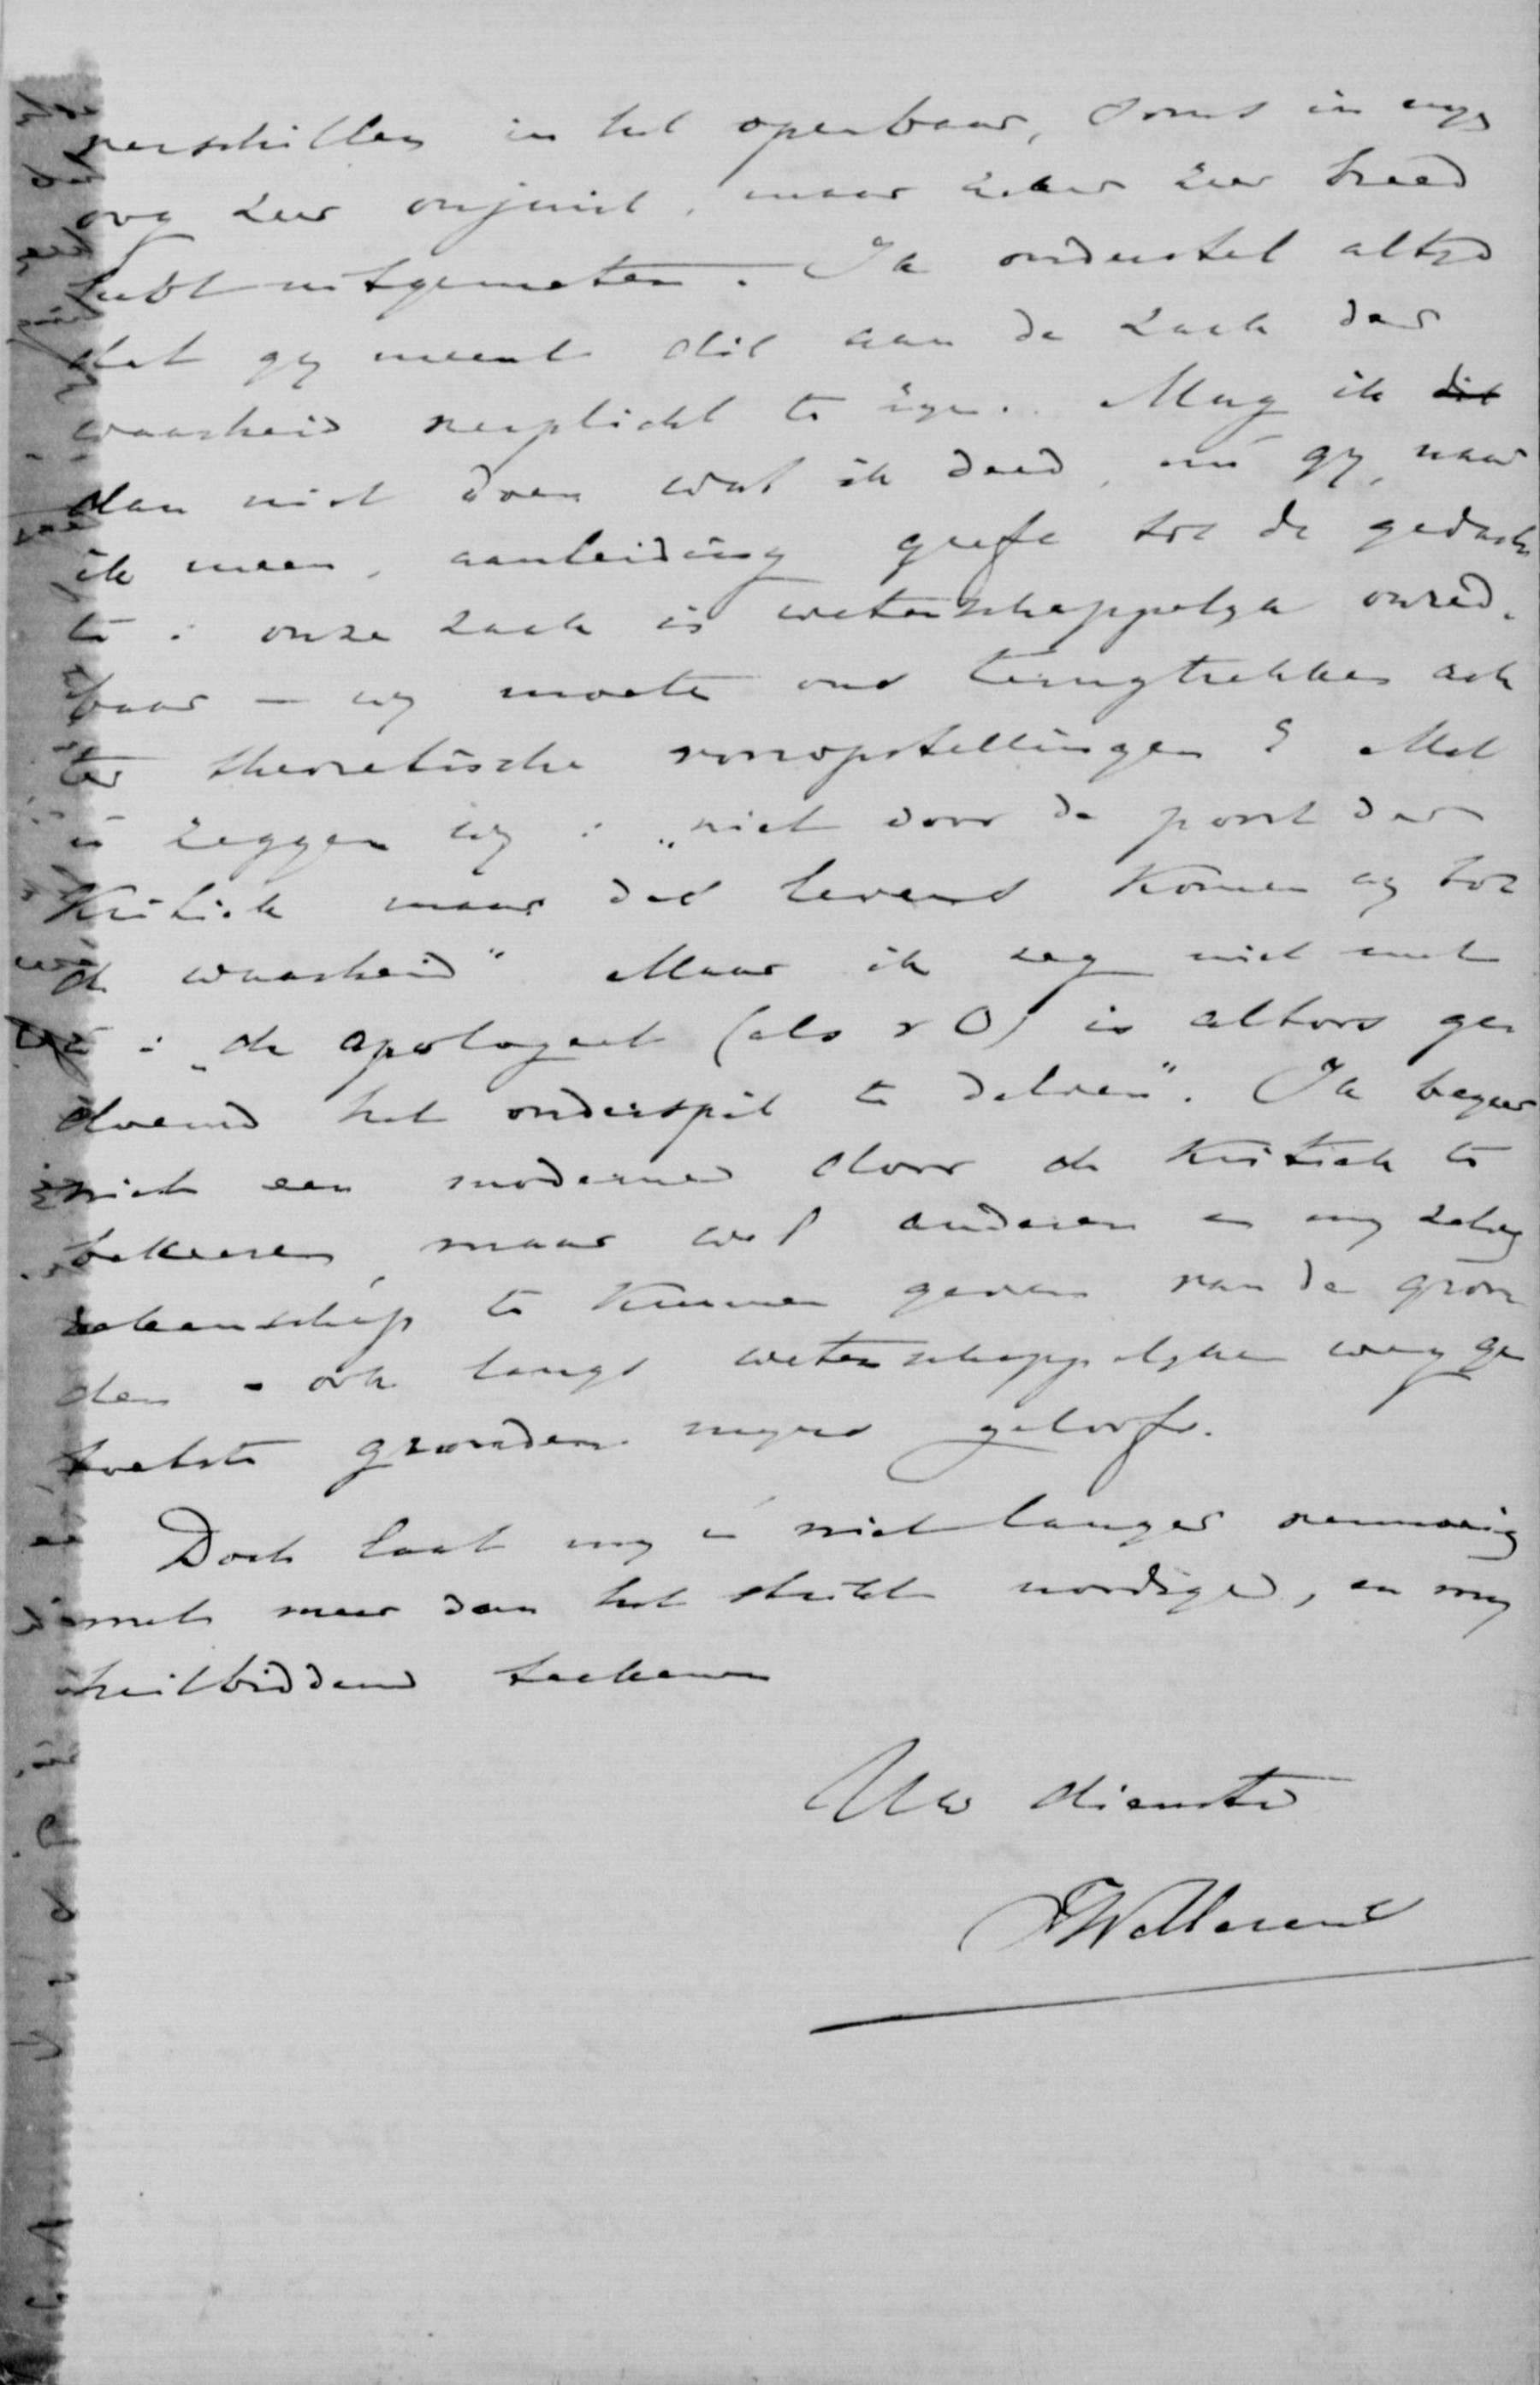 verschillen in het openbaar, soms in myn
oog zeer onjuist, maar zeker zeer breed
hebt uitgemeten. Ik onderstel altyd
dat gy meent dit aan de zaak der
waarheid verplicht te zyn. Mag ik dit
dan niet doen wat ik deed, nu gy, naar
ik meen, aanleiding geeft tot de gedach
te: onze zaak is wetenschappelyk onred-
baar – wy moeten ons terugtrekken ach
ter theoretische vooropstellingen? Met
u zeggen wy: „niet door de poort der
Kritiek maar des levens komen wy tot
de waarheid" Maar ik zeg niet met
u: „de apologeet (als v O) is altoos ge
doemd het onderspit te delven". Ik begeer
niet een moderne door de Kritiek te
bekeeren, maar wel anderen en my zelf
rekenschap te kunnen geven van de gron
den – ook langs wetenschappelyken weg ge
toetste gronden myns geloofs.
Doch laat my u niet langer vermoeien
met meer dan het strikt noodige, en my
heilbiddend teekenen
Uw dienstv